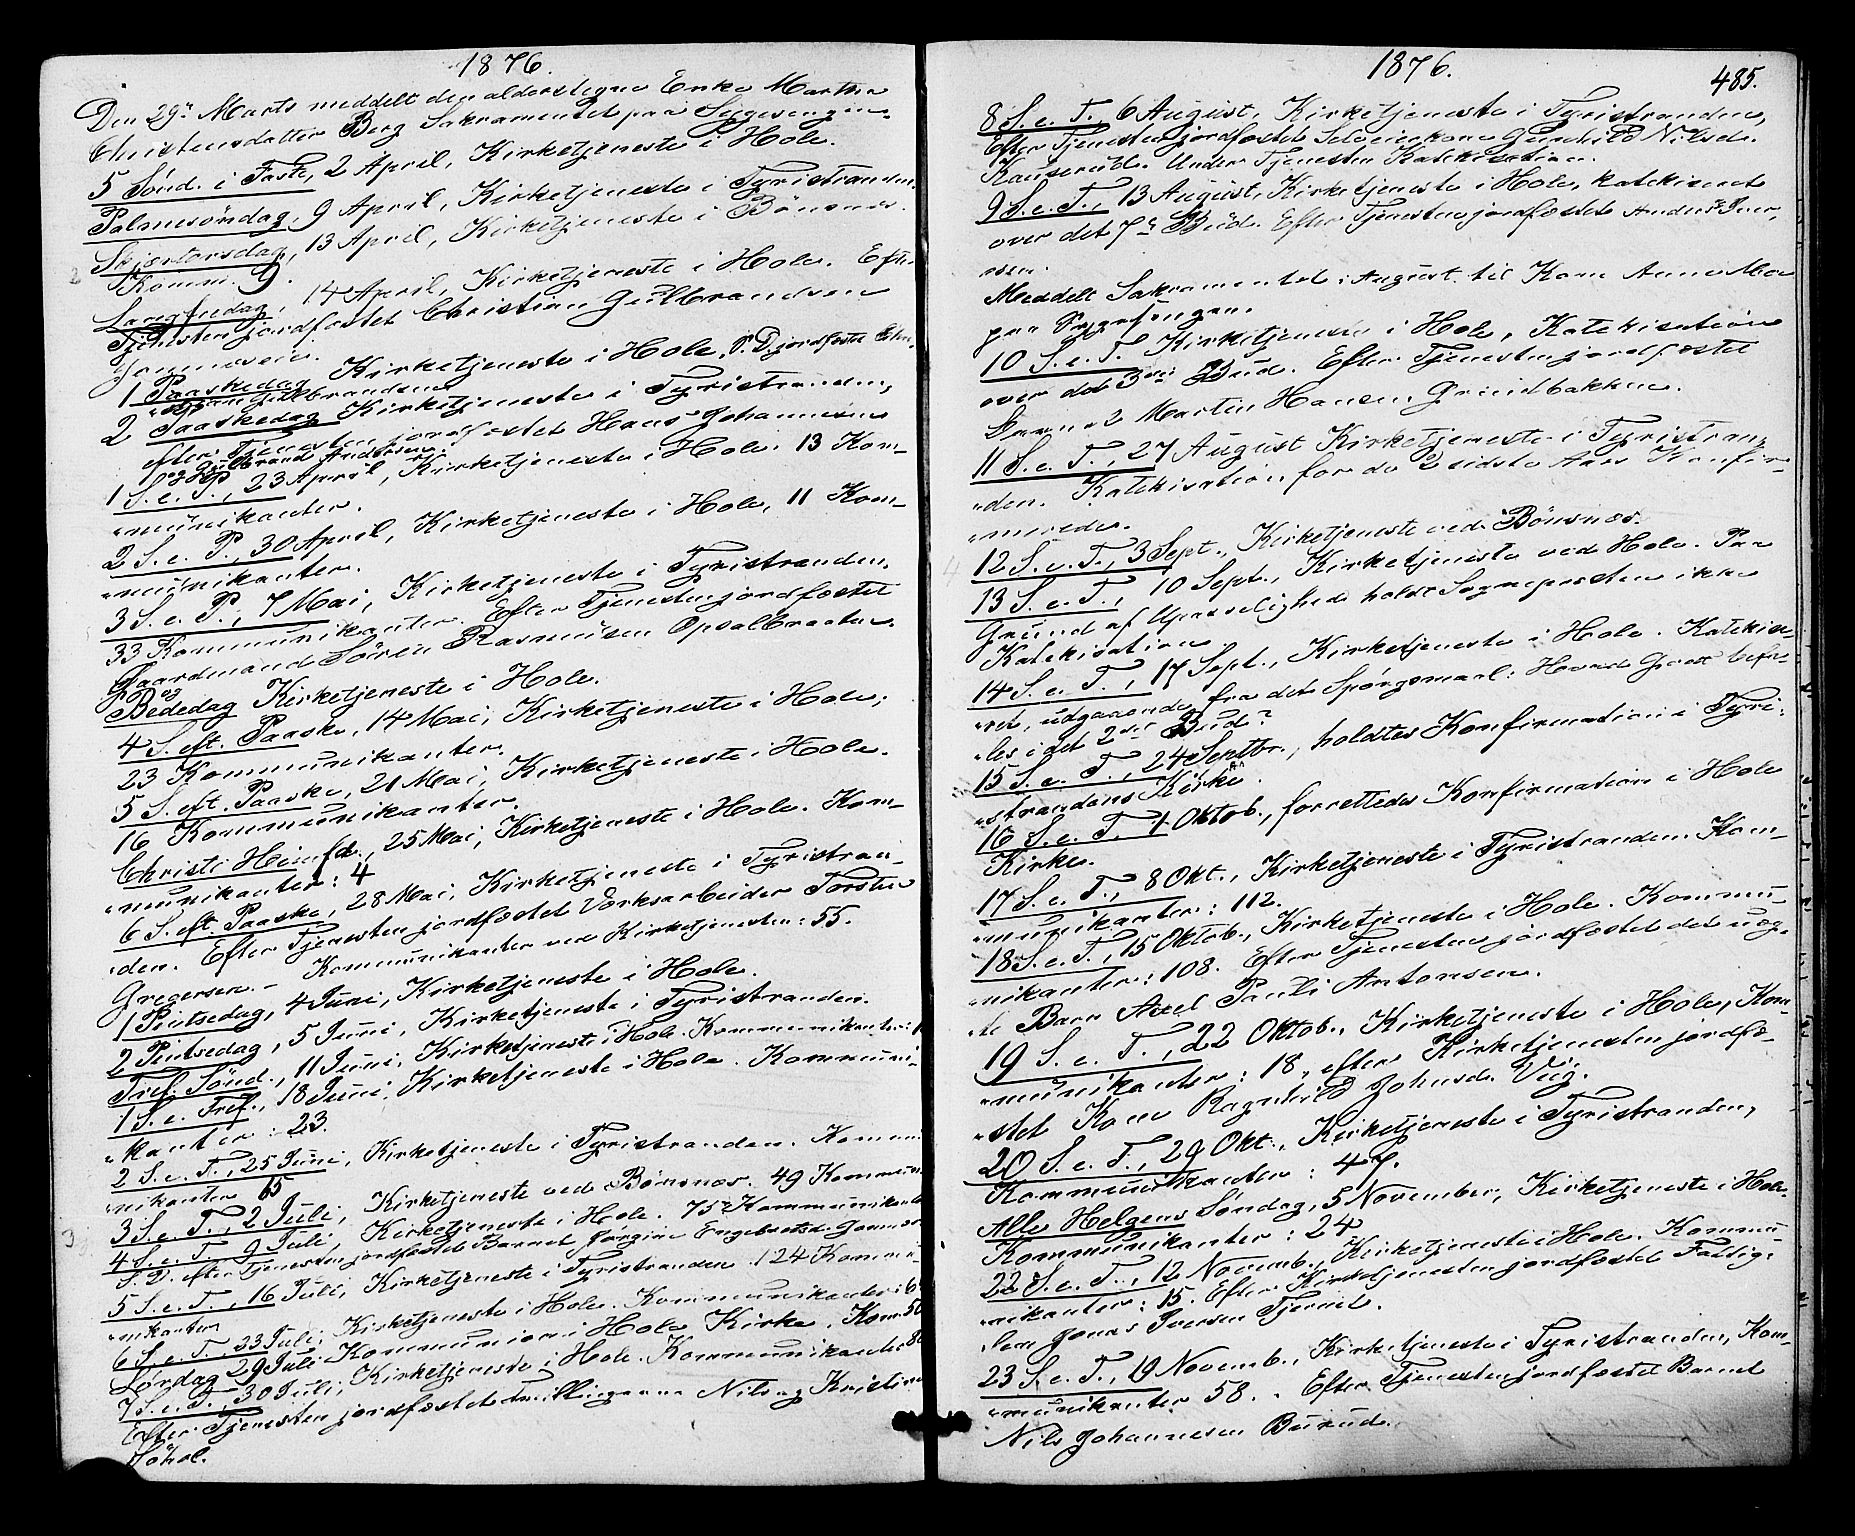 1876.
Den 29de Marts meddelt den alderstegne Enke Marthe
Christensdatter Berg Sakramentet paa Sygesengen.
5 Sønd. i Faste, 2 April, Kirketjeneste i Hole.
Palmesøndag, 9 April, Kirketjeneste i Tyristranden.
Skjærtorsdag, 13 April, Kirketjeneste i Bönsnes.
Komm. 9.
Langfredag, 14 April, Kirketjeneste i Hole. Efter
Tjenesten jordfæstet Christian Gulbrandsen
1 Paaskedag Kirketjeneste i Hole, S. D. jordfæstet
Gulbrandsen
2 Paaskedag Kirketjeneste i Tyristranden,
efter Tjenesten jordfæstet Hans Johannesen
og Gulbrand Andersen
1 S. e. P., 23 April, Kirketjeneste i Hole. 13 Kom-
munikanter.
2 S. e. P., 30 April, Kirketjeneste i Hole, 11 Kom-
munikanter.
3 S. e. P., 7 Mai, Kirketjeneste i Tyristranden.
33 Kommunikanter. Efter Tjenesten jordfæstet
Gaardmand Sören Rasmusen Opsalbraaten
Bededag Kirketjeneste i Hole.
4 S. eft. Paaske, 14 Mai, Kirketjeneste i Hole;
23 Kommunikanter.
5 S. eft. Paaske, 21 Mai, Kirketjeneste i Hole.
16 Kommunikanter.
Christi Himfd., 25 Mai, Kirketjeneste i Hole. Kom-
munikanter: 4
6 S. eft. Paaske, 28 Mai, Kirketjeneste i Tyristran-
den. Efter Tjenesten jordfæstet Værksarbeider Torsten
Gregersen. – Kommunikanter ved Kirketjenesten: 55.
1 Pintsedag, 4 Juni, Kirketjeneste i Hole.
2 Pintsedag, 5 Juni, Kirketjeneste i Tyristranden.
Tref. Sönd., 11 Juni, Kirketjenest i Hole. Kommunikanter: 1
1 S. e. Tref., 18 Juni, Kirketjeneste i Hole. Kommuni-
kanter: 23.
2 S. e. T., 25 Juni, Kirketjeneste i Tyristranden. Kommu
nikanter 65
3 S. e. T., 2 Juli, Kirketjeneste ved Bönsnæs. 49 Kommun
4 S. e. T. 9 Juli, Kirketjeneste i Hole. 75 Kommunikanter
S. D. efter Tjenesten jordfæstet Barnet Jörgine Engebretsd.
5 S. e. T., 16 Juli, Kirketjeneste i Tyristranden. 124 Kommu
nikanter
6 S. e. T. 23 Juli; Kirketjeneste i Hole. Kommunikanter: 6
Lørdag 29 Juli Kommunion i Hole Kirke, Komm 50
7 S. e. T. 30 Juli, Kirketjeneste i Hole. Kommunikanter 80
Efter Tjenesten jordfæstet Tvillingerne Nils og Kristine
Søhol.
1876.
485.
8 S. e. T., 6 August, Kirketjeneste i Tyristranden,
Efter Tjenesten jordfæstet Selveierkone Gunhild Nilsdr.
Kauserud. Under Tjenesten Katekisation.
9 S. e. T., 13 August, Kirketjeneste i Hole, katekiseret
over det 7de Bud. Efter Tjenesten jordfæstet Anders Iver-
sen.
Meddelt Sakramentet i August til Kone Anne Moe
paa Sygesengen.
10 S. e. T. Kirketjeneste i Hole, Katekisation
over det 3die Bud. Efter Tjenesten jordfæstet
Martin Hansen Grundbakken.
11 S. e. T., 27 August Kirketjeneste i Tyristran-
den. Katekisation for de 2 sidste Aars Konfir-
merede.
12 S. e. T., 3 Sept., Kirketjeneste ved Bönsnæs.
13 S. e. T., 10 Sept., Kirketjeneste ved Hole. Paa
Grund af Upasselighed holdt Sognepræsten ikke
Katekisation.
14 S. e. T., 17 Sept., Kirketjeneste i Hole. Katekise-
ret, udgaaende fra det Spörgsmaal: Hvad Godt befa-
les i det 2det Bud?
15 S. e. T., 24 Septbr., holdtes Konfirmation i Tyri-
strandens Kirke.
16 S. e. T. 1 Oktob., forrettedes Konfirmation i Hole
Kirke.
17 S. e. T., 8 Okt., Kirketjeneste i Tyristranden. Kom-
munikanter: 112.
18 S. e. T., 15 Oktob., Kirketjeneste i Hole. Kommu-
nikanter: 108. Efter Tjenesten jordfæstet det uæg-
te Barn Axel Pauli Antonsen.
19 S. e. T., 22 Oktob., Kirketjeneste i Hole, Kom-
munikanter: 18, efter Kirketjenesten jordfæ-
stet Kone Ragnhild Johnsdr. Vig.
20 S. e. T., 29 Okt., Kirketjeneste i Tyristranden,
Kommunikanter: 47.
Alle Helgens Søndag, 5 November, Kirketjeneste i Hole.
Kommunikanter: 24
22 S. e. T., 12 Novemb., Kirketjeneste i Hole. Kommu-
nikanter: 15. Efter Kirketjenesten jordfæstet Fattig-
lem Jonas Iversen Tjernet.
23 S. e. T., 19 Novemb., Kirketjeneste i Tyristranden, Kom-
munikanter 58. Efter Tjenesten jordfæstet Barnet
Nils Johannesen Burud.